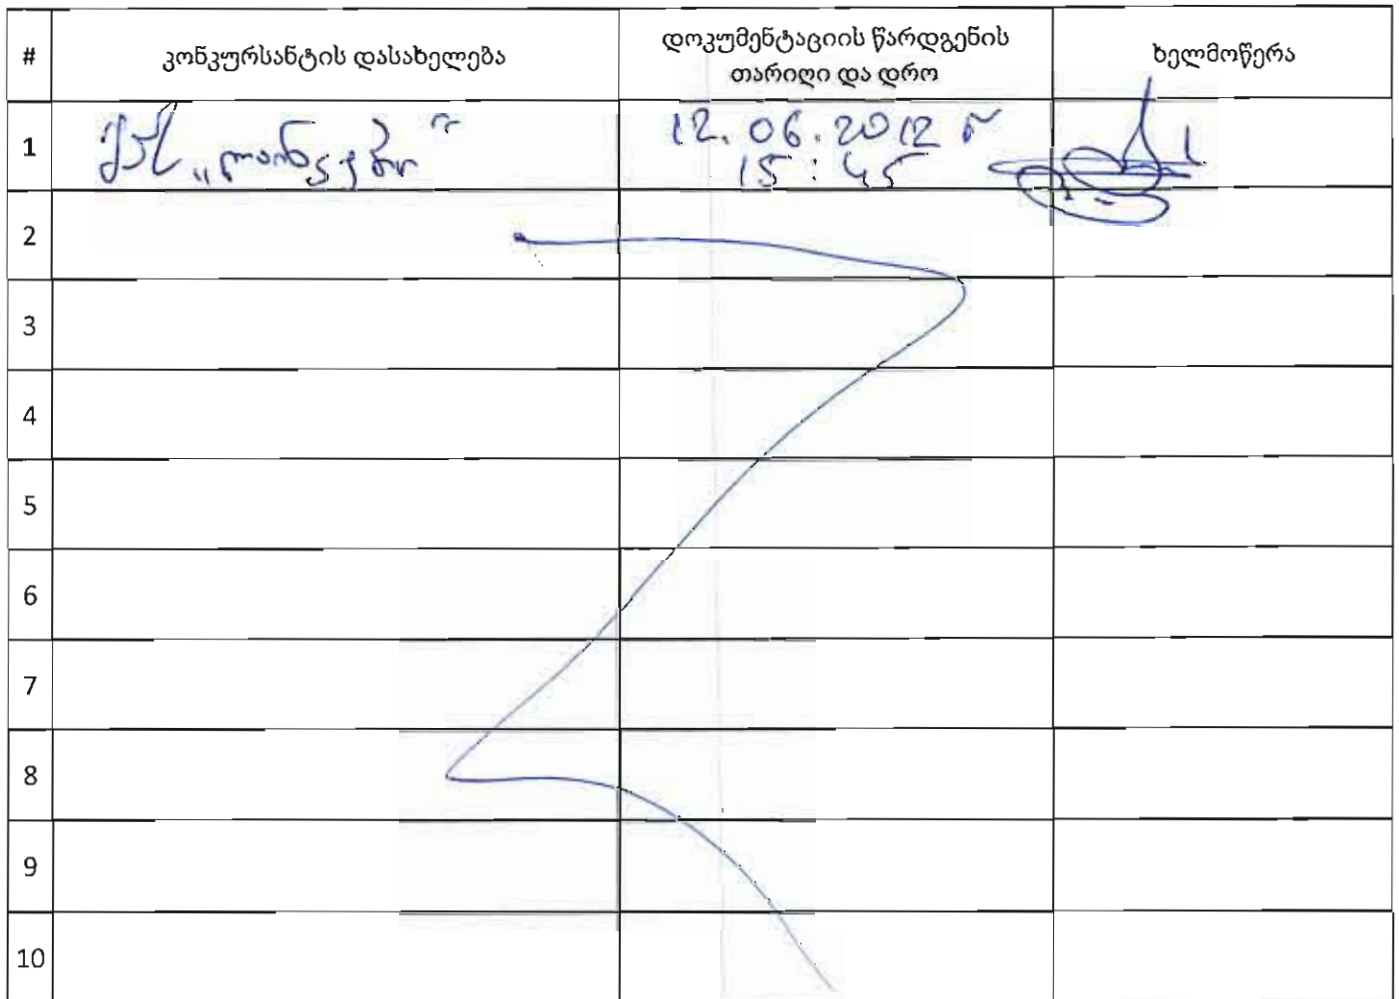 # კონკურსანტის დასახელება დოკუმენტაციის წარდგენის თარიღი და დრო ხელმოწერა
1 შპს 12.06.2012 წ
15:45
2
3
4
5
6
7
8
9
10